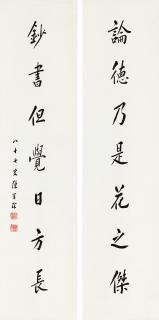 論德乃是花之傑
鈔書但覺日方長
八十七叟陳